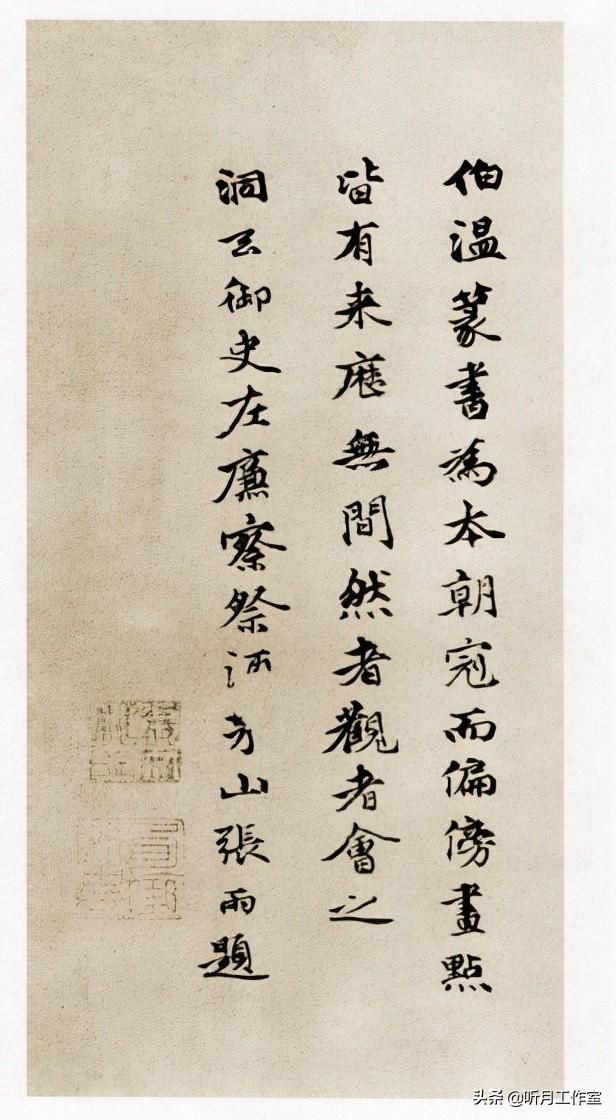 伯温篆書為本朝冠而偏傍畫點
皆有来歷無間然者觀者會之
洞御史在廉察祭山張雨題
头条 @听月工作室